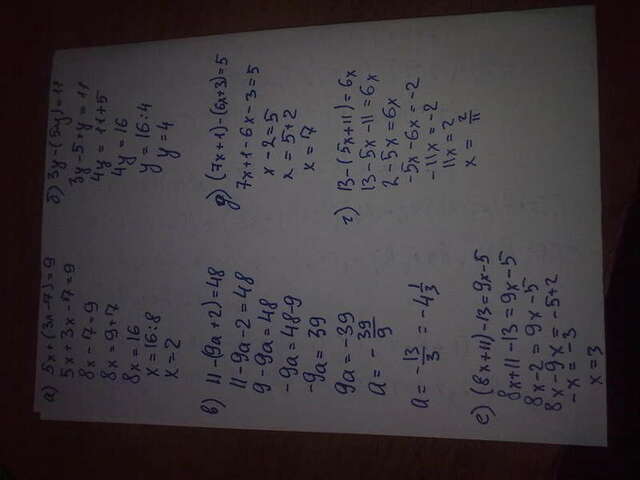 а) 5x + (3x - 7) = 9
5x + 3x - 7 = 9
8x - 7 = 9
8x = 9 + 7
8x = 16
x = 16 : 8
x = 2
б) 3y - (5-y) = 11
3y - 5 + y = 11
4y = 11 + 5
4y = 16
y = 16 : 4
y = 4
в) 11 - (9a + 2) = 48
11 - 9a - 2 = 48
9 - 9a = 48
-9a = 48 - 9
-9a = 39
9a = -39
a = - 39/9
a = - 13/3 = -4 1/3
д) (7x + 1) - (6x + 3) = 5
7x + 1 - 6x - 3 = 5
x - 2 = 5
x = 5 + 2
x = 7
г) 13 - (5x + 11) = 6x
13 - 5x - 11 = 6x
2 - 5x = 6x
-5x - 6x = -2
-11x = -2
11x = 2
x = 2/11
е) (8x + 11) - 13 = 9x - 5
8x + 11 - 13 = 9x - 5
8x - 2 = 9x - 5
8x - 9x = -5 + 2
-x = -3
x = 3